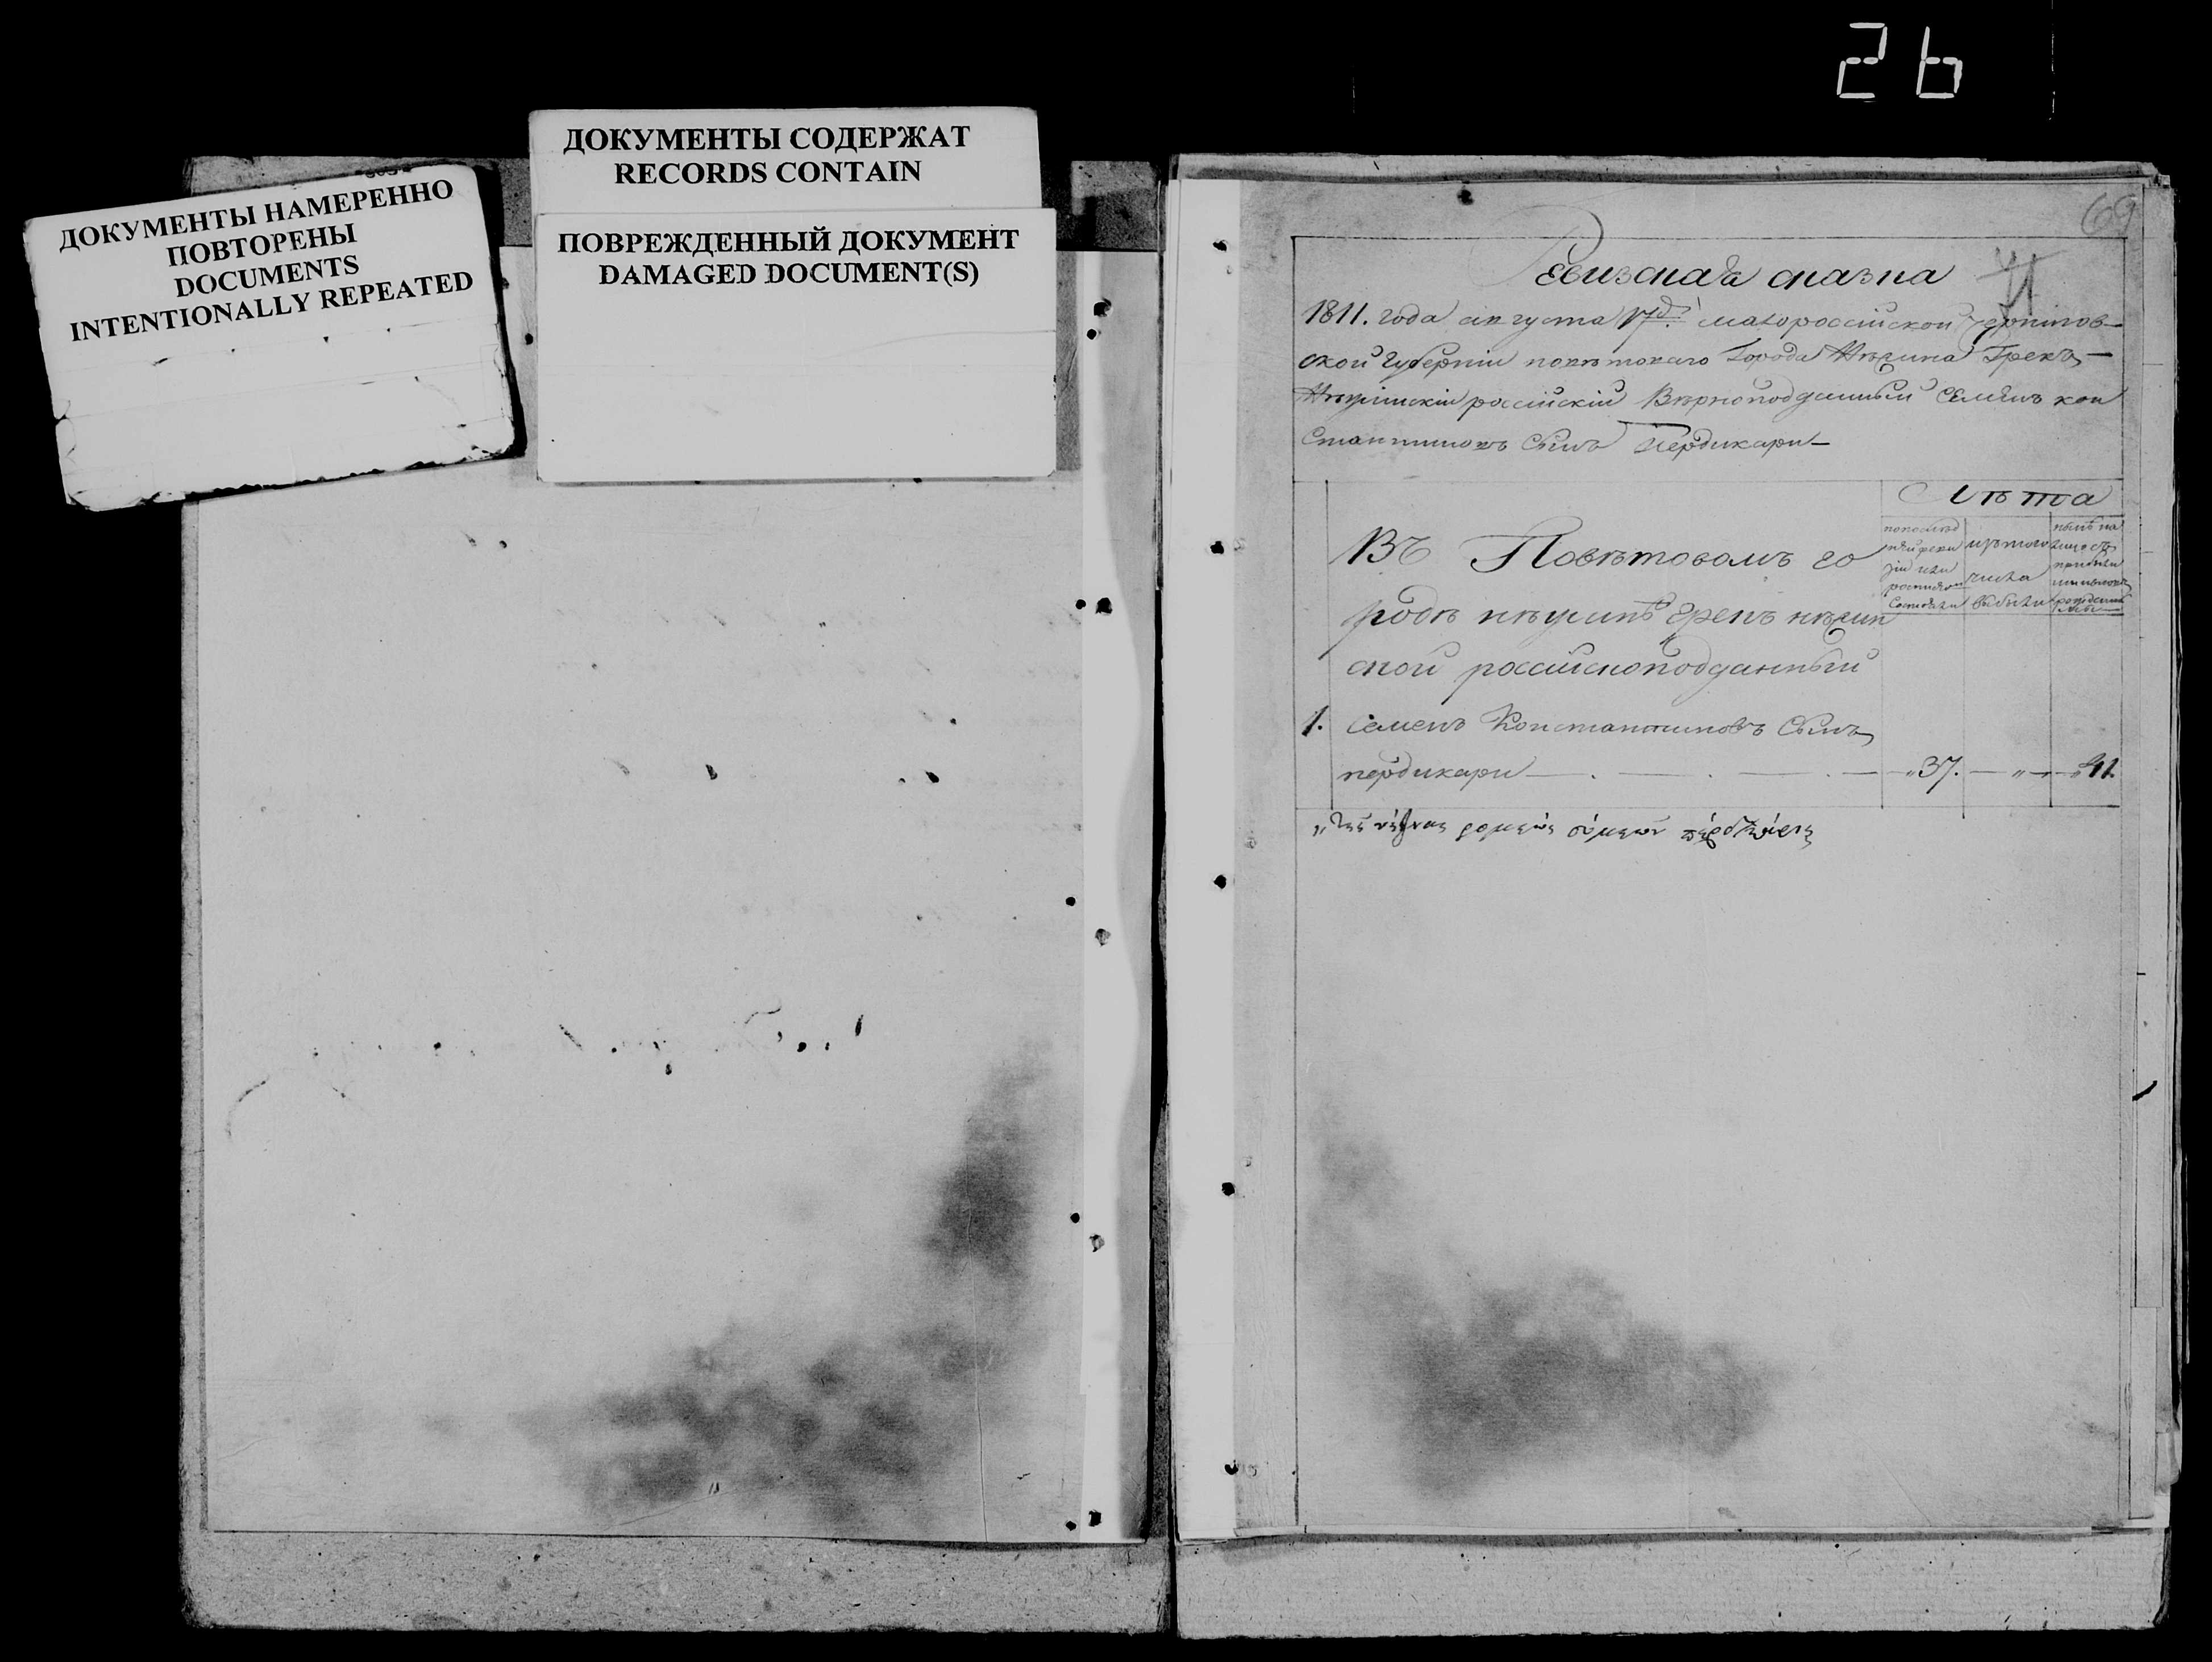 26
ДОКУМЕНТЫ НАМЕРЕННО
ПОВТОРЕНЫ
DOCUMENTS
INTENTIONALLY REPEATED
ДОКУМЕНТЫ СОДЕРЖАТ
RECORDS CONTAIN
ПОВРЕЖДЕННЫЙ ДОКУМЕНТ
DAMAGED DOCUMENT(S)
69
Ревизская сказка
1811. года августа малороссийской Чернигов-
ской Губерніи поветового Города Нѣжина Грекъ
российскій Вѣрноподданный Семенъ кон
стантиновъ Сынъ Пердикари
Лѣта
по послѣд
ней реви
зіи или
состояли
изъ того
числа
выбыли
нынѣ на
лицо съ
Въ Повѣтовомъ го
родѣ нѣжинѣ Грекъ нѣжин
ской российскоподданный
1. Семенъ Константиновъ Сынъ
пердикари 37. 41.